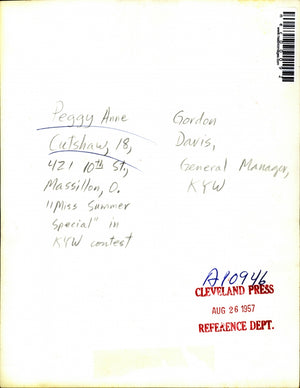 Peggy Anne
Cutshaw, 18,
421 10th St.,
Massillon, O.
"Miss Summer
Special" in
KYW contest
Gordon
Davis,
General Manager,
KYW
A10946
CLEVELAND PRESS
AUG 26 1957
REFERENCE DEPT.